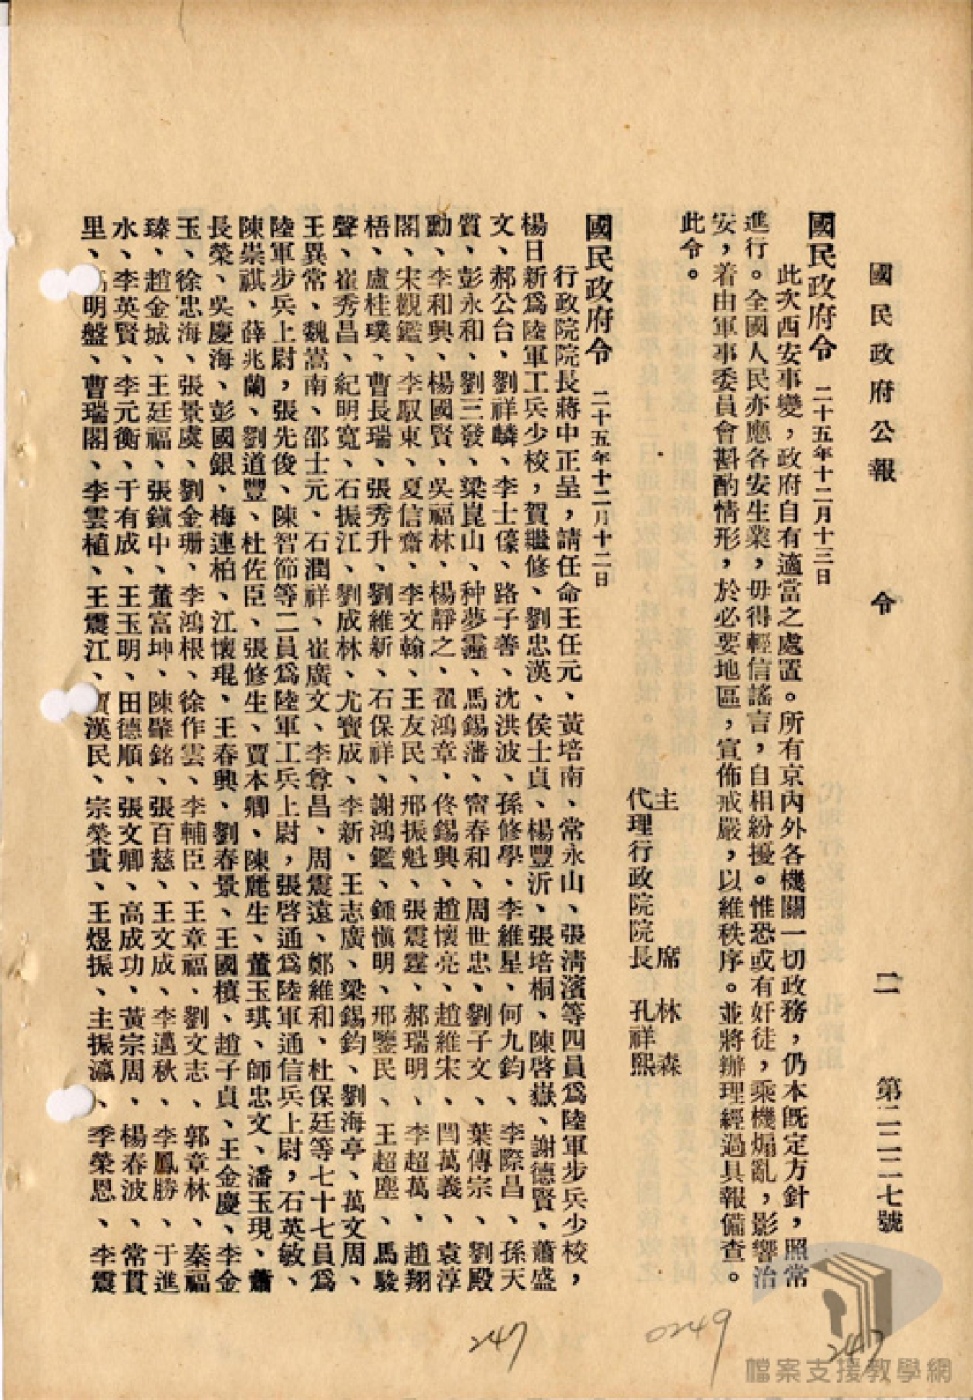 國民政府公報　令　二　第二二二七號
國民政府令　二十五年十二月十三日
此次西安事變，政府自有適當之處置。所有京內外各機關一切政務，仍本既定方針，照常
進行。全國人民亦應各安生業，毋得輕信謠言，自相紛擾。惟恐或有奸徒，乘機煽亂，影響治
安，着由軍事委員會斟酌情形，於必要地區，宣佈戒嚴，以維秩序。並將辦理經過具報備查。
此令。
主席　林　森
代理行政院院長　孔祥熙
國民政府令　二十五年十二月十二日
行政院院長蔣中正呈，請任命王任元、黃培南、常永山、張清濱等四員爲陸軍步兵少校，
楊日新爲陸軍工兵少校，賀繼修、劉忠漢、侯士貞、楊豐沂、張培桐、陳啓嶽、謝德賢、蕭盛
文、郝公台、劉祥麟、李士儫、路子善、沈洪波、孫修學、李維星、何九鈞、李際昌、孫天
質、彭永和、劉三發、梁崑山、种夢靈、馬錫藩、甯春和、周世忠、劉子文、葉傳宗、劉殿
勳、李和興、楊國賢、吳福林、楊靜之、翟鴻章、佟錫興、趙懷亮、趙維宋、閆萬義、袁淳
閣、宋觀鑑、李馭東、夏信齋、李文翰、王友民、邢振魁、張震霆、郝瑞明、李超萬、趙翔
梧、盧桂璞、曹長瑞、張秀升、劉維新、石保祥、謝鴻鑑、鍾愼明、邢鑒民、王超塵、馬駿
聲、崔秀昌、紀明寬、石振江、劉成林、尤寶成、李新、王志廣、梁錫鈞、劉海亭、萬文周、
王異常、魏嵩南、邵士元、石潤祥、崔廣文、李尊昌、周震遠、鄭維和、杜保廷等七十七員爲
陸軍步兵上尉，張先俊、陳智節等二員爲陸軍工兵上尉，張啓通爲陸軍通信兵上尉，石英敏、
陳崇祺、薛兆蘭、劉道豐、杜佐臣、張修生、賈本卿、陳麗生、董玉琪、師忠文、潘玉現、蕭
長榮、吳慶海、彭國銀、梅連柏、江懷琨、王春興、劉春景、王國楨、趙子貞、王金慶、李金
玉、徐忠海、張景虞、劉金珊、李鴻根、徐作雲、李輔臣、王章福、劉文志、郭章林、秦福
臻、趙金城、王廷福、張鎭中、董富坤、陳肇銘、張百慈、王文成、李邁秋、李鳳勝、于進
水、李英賢、李元衡、于有成、王玉明、田德順、張文卿、高成功、黃宗周、楊春波、常貫
里、高明盤、曹瑞閣、李雲植、王震江、賈漢民、宗榮貴、王煜振、主振瀛、季榮恩、李震
247
0249
247
檔案支援教學網